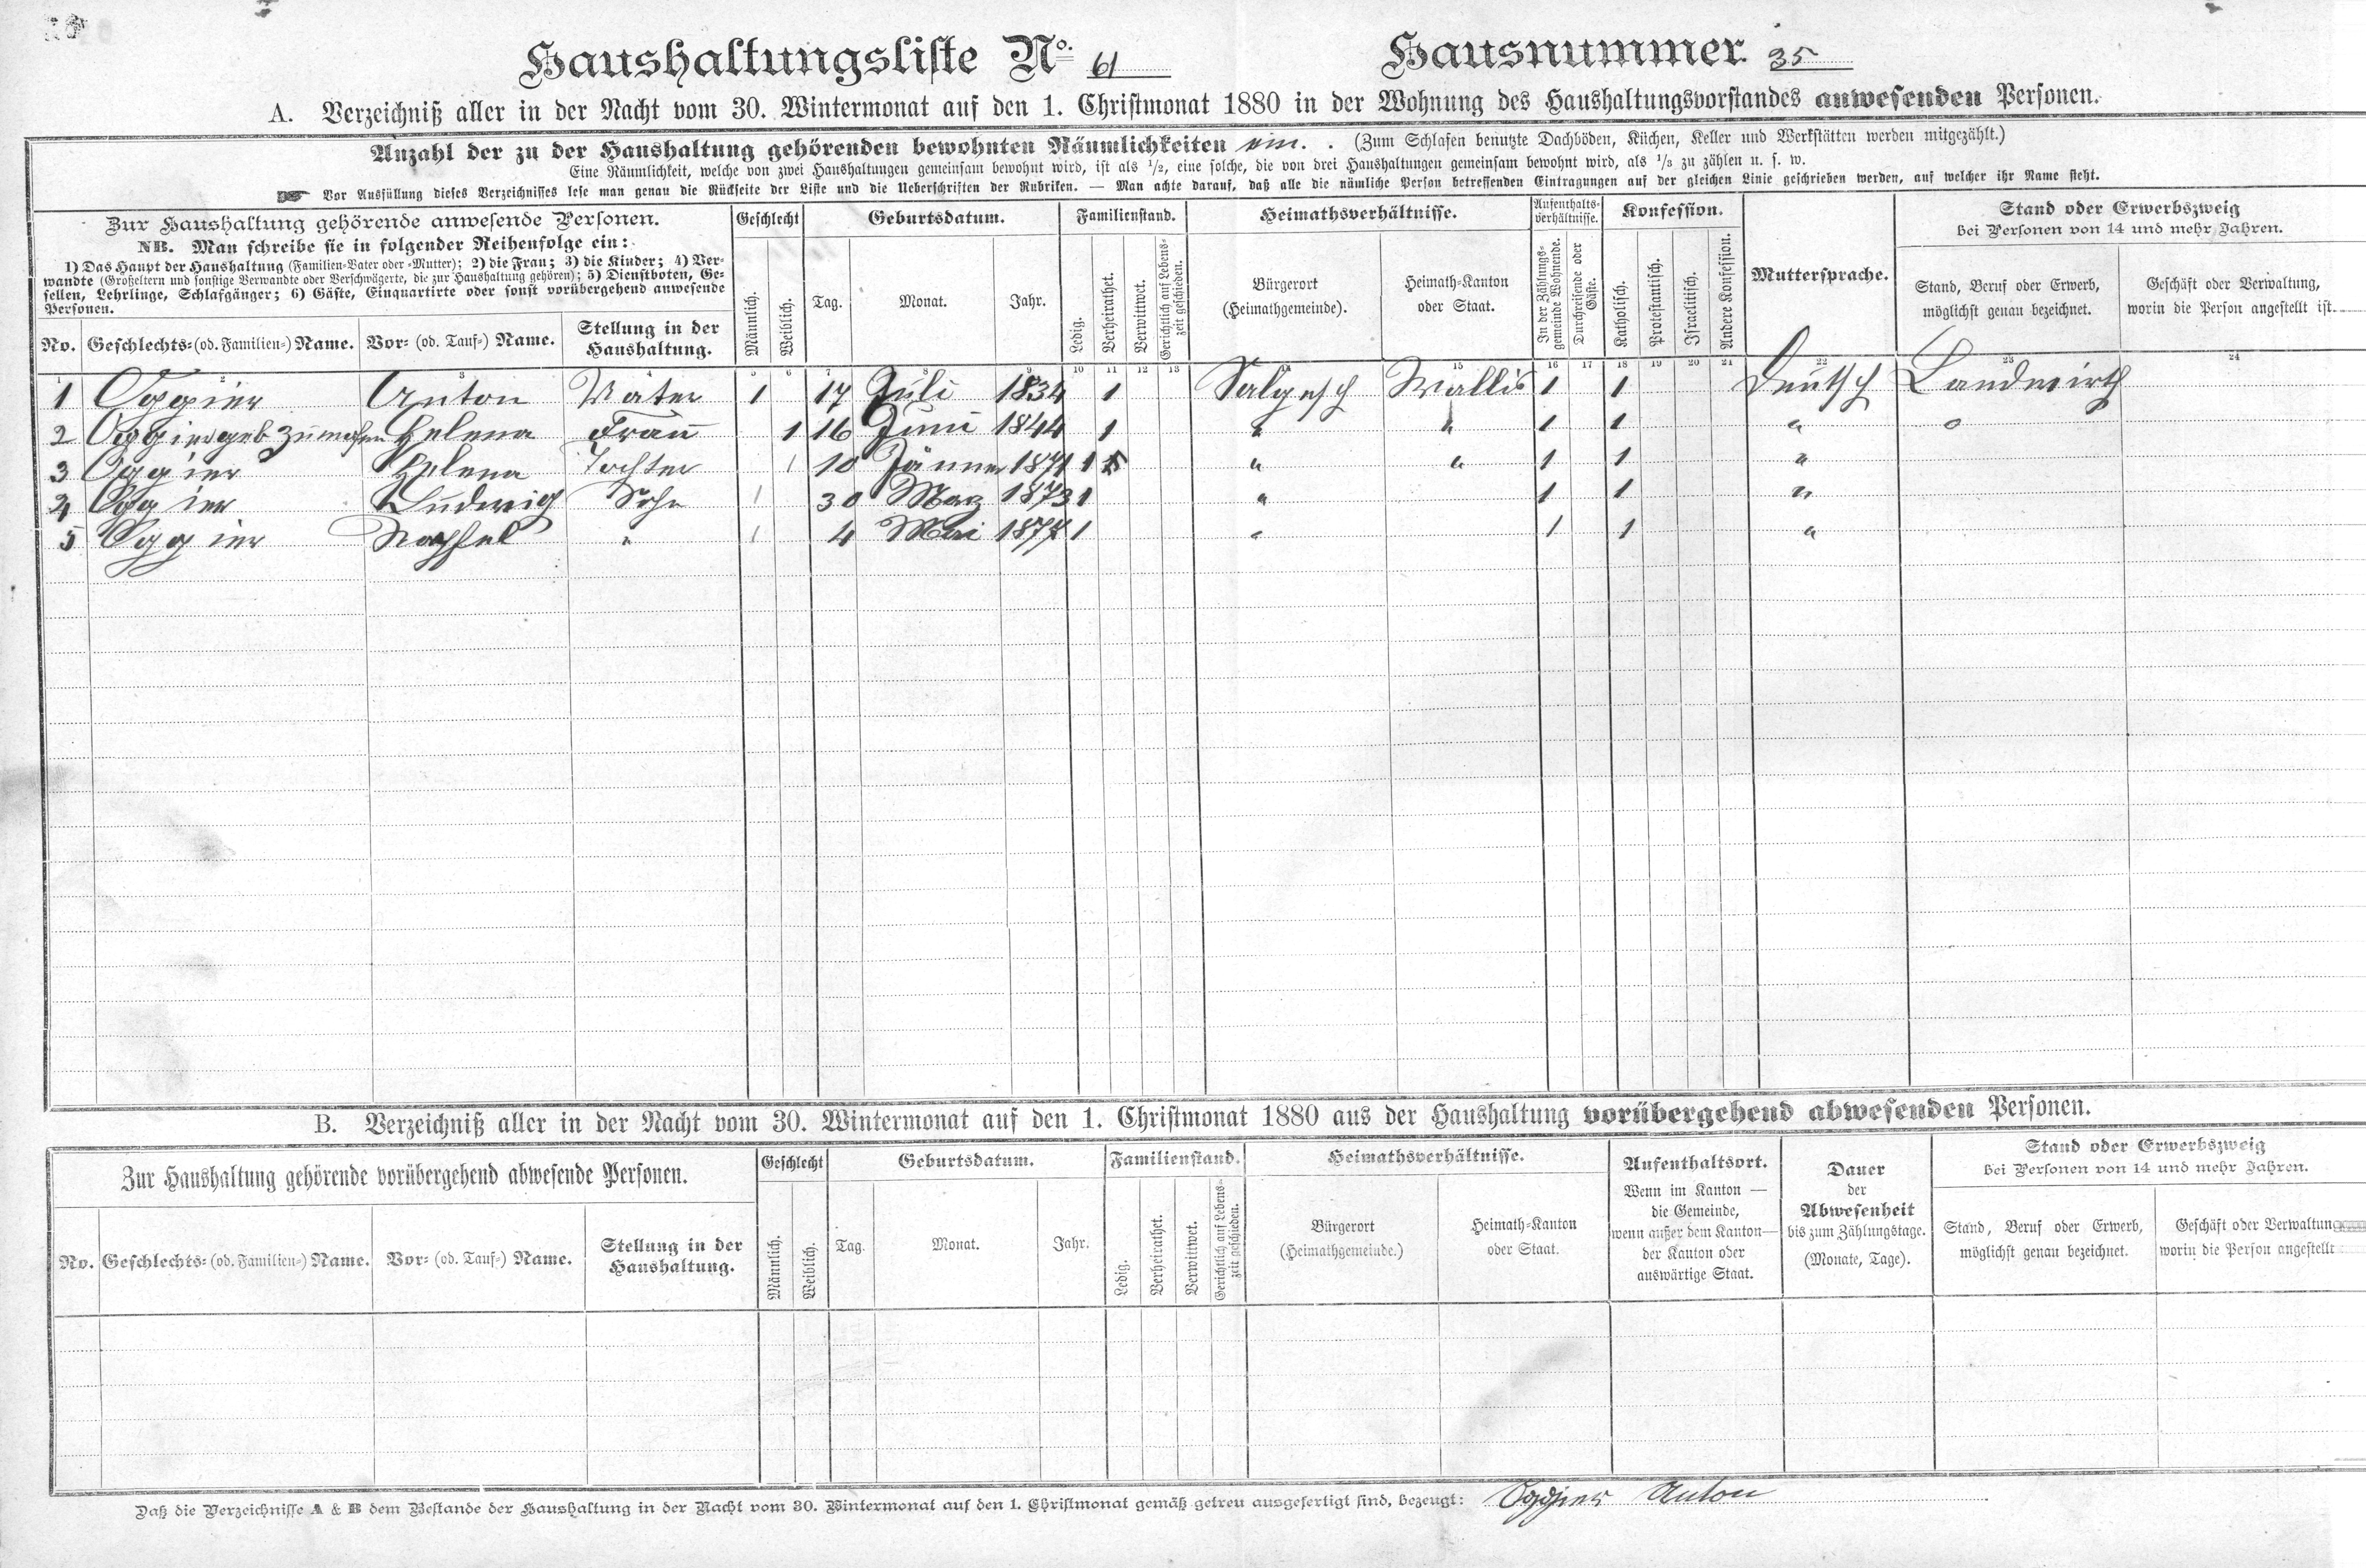 Haushaltungsliste No. 61 Hausnummer 35
A. Verzeichniß aller in der Nacht vom 30. Wintermonat auf den 1. Christmonat 1880 in der Wohnung des Haushaltungsvorstandes anwesenden Personen.
Anzahl der zu der Haushaltung gehörenden bewohnten Räumlichkeiten ein. . (Zum Schlafen benutzte Dachböden, Küchen, Keller und Werkstätten werden mitgezählt.)
Eine Räumlichkeit, welche von zwei Haushaltungen gemeinsam bewohnt wird, ist als 1/2, eine solche, die von drei Haushaltungen gemeinsam bewohnt wird, als 1/3 zu zählen u. s. w.
☛ Vor Ausfüllung dieses Verzeichnisses lese man genau die Rückseite der Liste und die Ueberschriften der Rubriken. — Man achte darauf, daß alle die nämliche Person betreffenden Eintragungen auf der gleichen Linie geschrieben werden, auf welcher ihr Name steht.
Zur Haushaltung gehörende anwesende Personen.
NB. Man schreibe sie in folgender Reihenfolge ein:
1) Das Haupt der Haushaltung (Familien-Vater oder -Mutter); 2) die Frau; 3) die Kinder; 4) Ver-
wandte (Großeltern und sonstige Verwandte oder Verschwägerte, die zur Haushaltung gehören); 5) Dienstboten, Ge-
sellen, Lehrlinge, Schlafgänger; 6) Gäste, Einquartirte oder sonst vorübergehend anwesende
Personen.
No. Geschlechts- (od. Familien-) Name. Vor- (od. Tauf-) Name. Stellung in der
Haushaltung.
Geschlecht
Männlich. Weiblich.
Geburtsdatum.
Tag. Monat. Jahr.
Familienstand.
Ledig. Verheirathet. Verwittwet. Gerichtlich auf Lebens-
zeit geschieden.
Heimathsverhältnisse.
Bürgerort
(Heimathgemeinde).
Heimath-Kanton
oder Staat.
Aufenthalts-
verhältnisse.
In der Zählungs-
gemeinde Wohnende.
Durchreisende oder
Gäste.
Konfession.
Katholisch. Protestantisch. Israelitisch. Andere Konfession.
Muttersprache.
Stand oder Erwerbszweig
bei Personen von 14 und mehr Jahren.
Stand, Beruf oder Erwerb,
möglichst genau bezeichnet.
Geschäft oder Verwaltung,
worin die Person angestellt ist.
1 2 3 4 5 6 7 8 9 10 11 12 13 14 15 16 17 18 19 20 21 22 23 24
1 Oggier Anton Vater 1 17 Juli 1834 1 Salgesch Wallis 1 1 Deutsch Landwirth
2 Oggier geb Zumofen Helena Frau 1 16 Juni 1844 1 " " 1 1 " o
3 Oggier Helena Tochter 1 10 Jänner 1871 1 " " 1 1 "
4 Oggier Ludwig Sohn 1 30 Marz 1873 1 " 1 1 "
5 Oggier Raphael " 1 4 Mai 1877 1 " 1 1 "
B. Verzeichniß aller in der Nacht vom 30. Wintermonat auf den 1. Christmonat 1880 aus der Haushaltung vorübergehend abwesenden Personen.
Zur Haushaltung gehörende vorübergehend abwesende Personen.
No. Geschlechts- (od. Familien-) Name. Vor- (od. Tauf-) Name. Stellung in der
Haushaltung.
Geschlecht
Männlich. Weiblich.
Geburtsdatum.
Tag. Monat. Jahr.
Familienstand.
Ledig. Verheirathet. Verwittwet. Gerichtlich auf Lebens-
zeit geschieden.
Heimathsverhältnisse.
Bürgerort
(Heimathgemeinde.)
Heimath-Kanton
oder Staat.
Aufenthaltsort.
Wenn im Kanton —
die Gemeinde,
wenn außer dem Kanton—
der Kanton oder
auswärtige Staat.
Dauer
der
Abwesenheit
bis zum Zählungstage.
(Monate, Tage).
Stand oder Erwerbszweig
bei Personen von 14 und mehr Jahren.
Stand, Beruf oder Erwerb,
möglichst genau bezeichnet.
Geschäft oder Verwaltung
worin die Person angestellt
Daß die Verzeichnisse A & B dem Bestande der Haushaltung in der Nacht vom 30. Wintermonat auf den 1. Christmonat gemäß getreu ausgefertigt sind, bezeugt: Oggier Anton